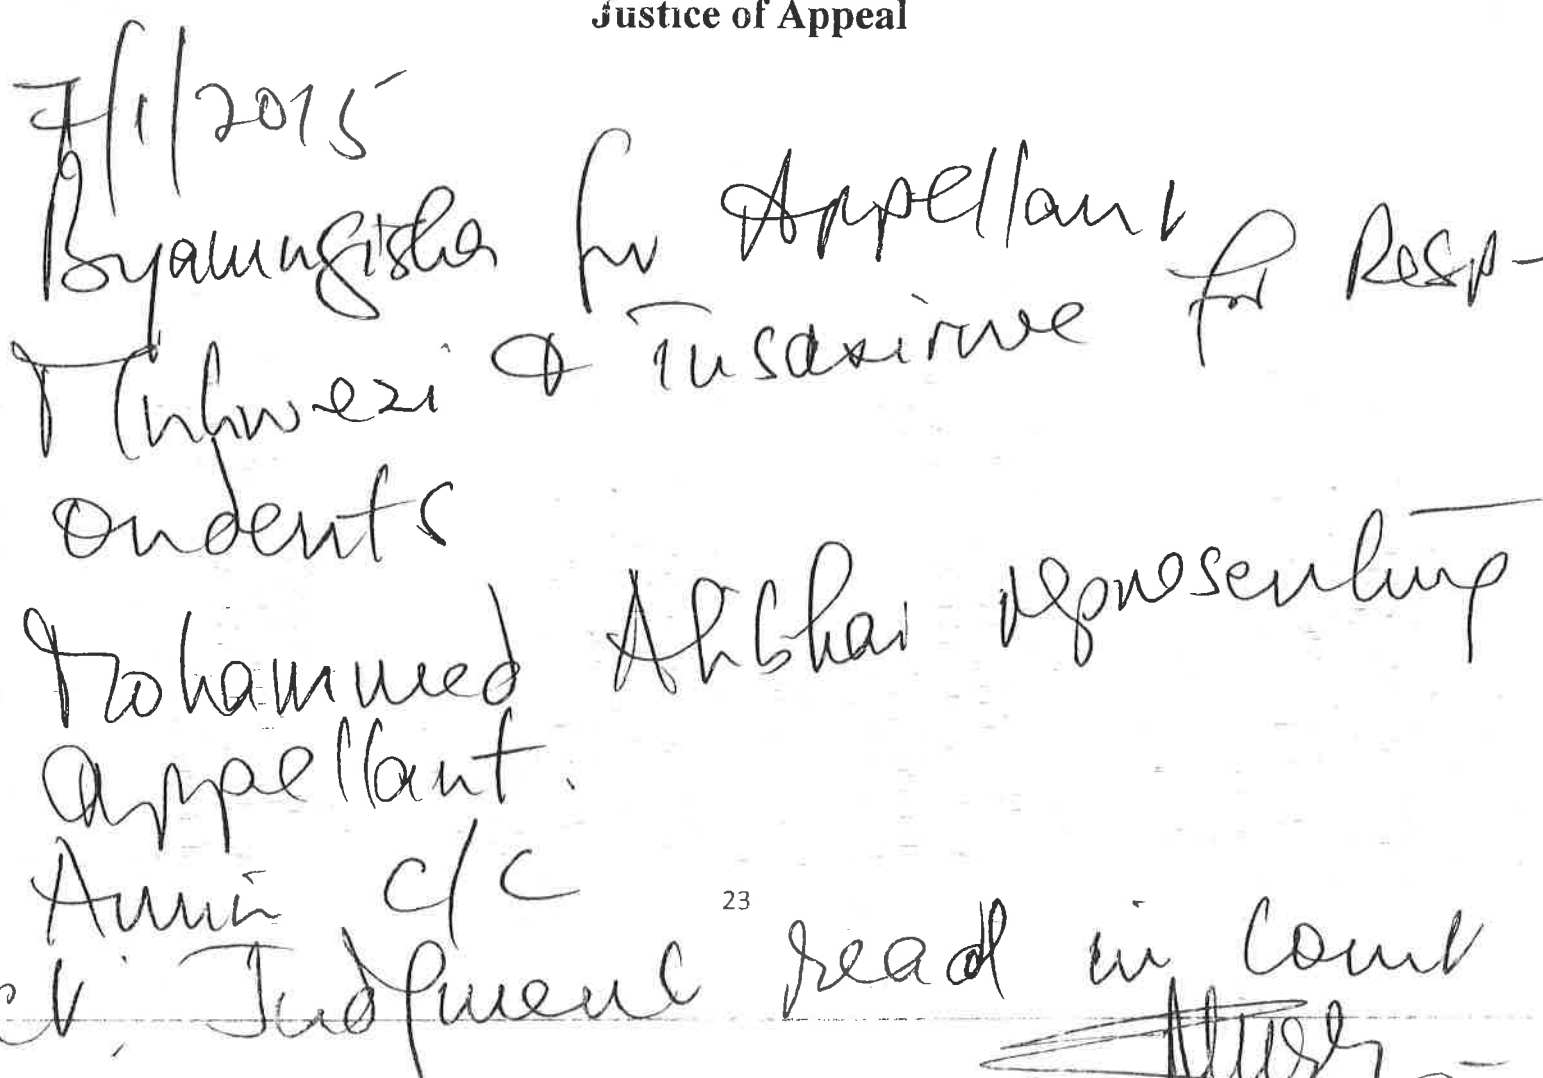 Justice of Appeal
7/1/2015
Byamugisha for Appellant
Muhwezi & Tusasirwe for Resp-
ondents
Mohammed Alibhai representing
appellant.
Amin c/c
Judgment read in Court
23